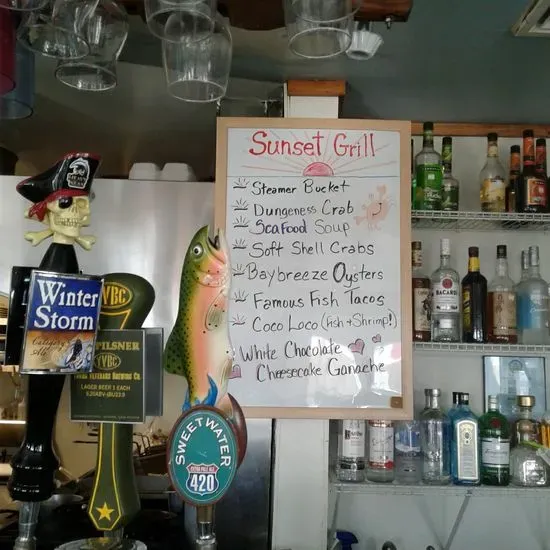 Sunset Grill
Steamer Bucket
Dungeness Crab
Seafood Soup
Soft Shell Crabs
Baybreeze Oysters
Famous Fish Tacos
Coco Loco (Fish + Shrimp!)
White Chocolate
Cheesecake Ganache
Winter
Storm
Category 5
Ale
VBC
PILSNER
VBC
BREWING CO.
LAGER BEER
SWEETWATER
EXTRA PALE ALE
420
BACARDI